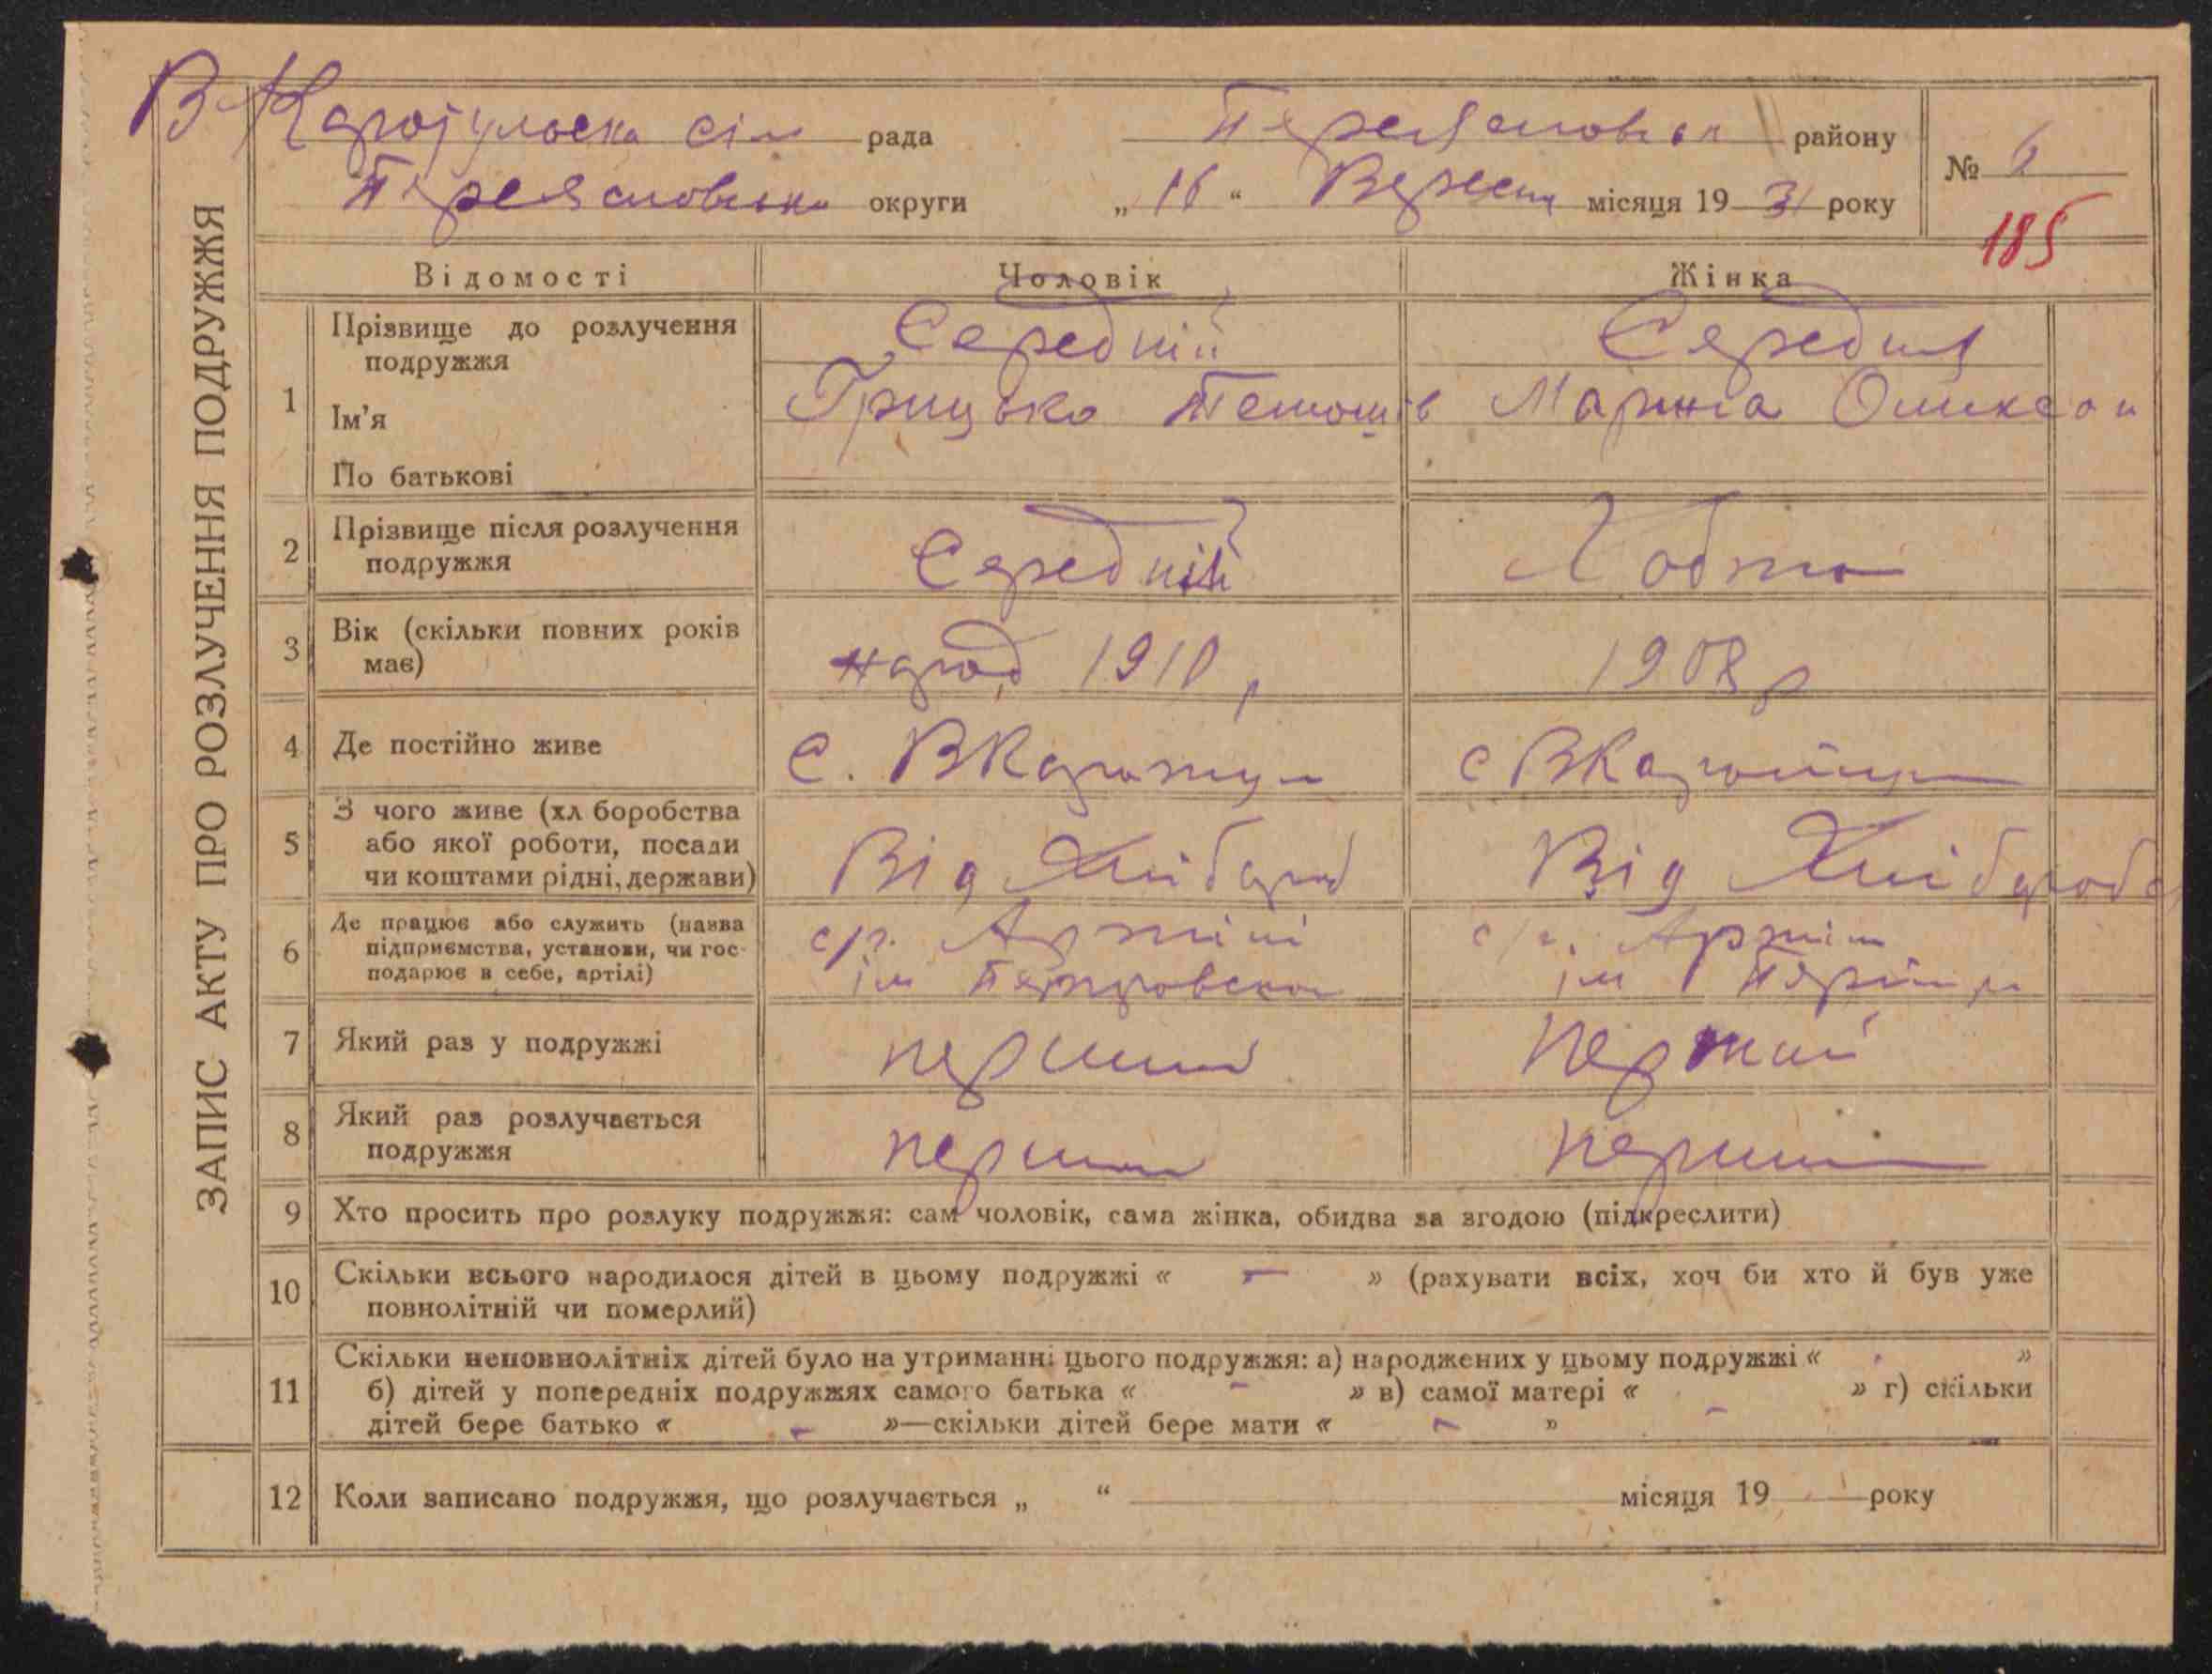 рада Переяславськ району
№ 6
округи „ 16 “ Вересня місяця 19 31 року
185
ЗАПИС АКТУ ПРО РОЗЛУЧЕННЯ ПОДРУЖЖЯ
Відомості Чоловік Жінка
1 Прізвище до розлучення Середній Середня
подружжя
Ім'я Грицько Марина
По батькові
2 Прізвище після розлучення Середній
подружжя
3 Вік (скільки повних років 1910 р 1908 р
має)
4 Де постійно живе с. В Каратул с В Каратул
5 З чого живе (хл боробства
або якої роботи, посади Від Хлібороб Від Хлібороб
чи коштами рідні, держави)
6 Де працює або служить (назва с/г. Артілі с/г. Артіл
підприємства, установи, чи гос- ім ім
подарює в себе, артілі)
7 Який раз у подружжі перший перший
8 Який раз розлучається перший перший
подружжя
9 Хто просить про розлуку подружжя: сам чоловік, сама жінка, обидва за згодою (підкреслити)
10 Скільки всього народилося дітей в цьому подружжі « — » (рахувати всіх, хоч би хто й був уже
повнолітній чи померлий)
11 Скільки неповнолітніх дітей було на утриманні цього подружжя: а) народжених у цьому подружжі « »
б) дітей у попередніх подружжях самого батька « - » в) самої матері « - » г) скільки
дітей бере батько « - »—скільки дітей бере мати « - »
12 Коли записано подружжя, що розлучається „ “ місяця 19 року